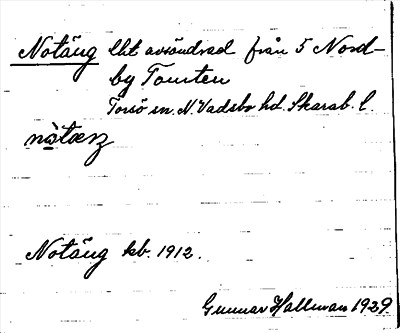 Notäng lht avsöndrad från 5 Nord-
by Tomten
Torsö sn. N. Vadsbo hd. Skarab. l.
Notäng kb. 1912.
Gunnar Hallman 1929.